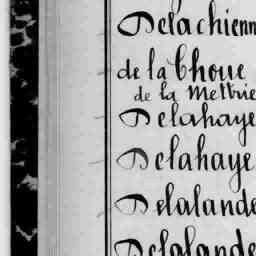 Delachienn
de la Choue
de la Mettrie
Delahaye
Delahaye
Delalande
Delalande